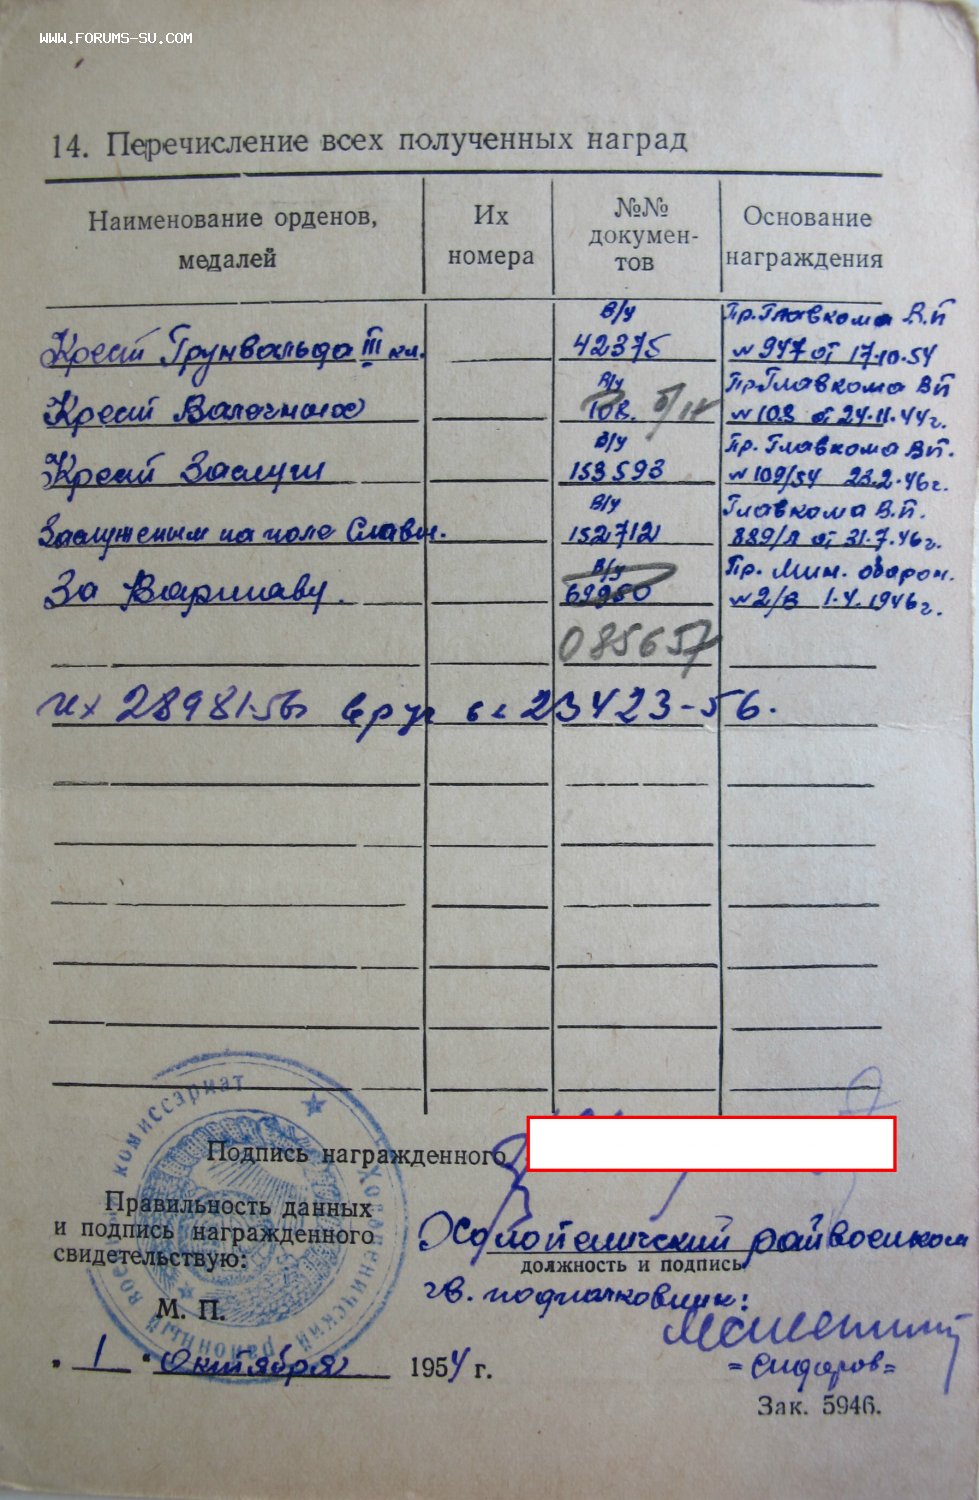 WWW.FORUMS-SU.COM
14. Перечисление всех полученных наград
Наименование орденов, медалей
Их номера
№№ докумен-тов
Основание награждения
В/у
Пр. Главкома В.П
Крест Грунвальда III кл. 42375 № 947 от 17.10.54
В/у Пр. Главкома ВП
Крест Валечных 108. № 108 от 24.11.44г.
В/у Пр. Главкома ВП.
Крест Заслуги 153593 № 109/54 23.2.46г.
В/у Главкома В.П.
Заслуженным на поле Славы. 152712 889/л от 31.7.46г.
В/у Пр. Мин. оборон.
За Варшаву. 69980 № 2/В 1.4.1946г.
085657
28981-56 вруч 23423-56.
Подпись награжденного
Правильность данных
и подпись награжденного
свидетельствую:
Холопеничский райвоенком
должность и подпись
гв. подполковник:
М. П.
= Сидоров =
" 1 " Октября 1954 г.
Зак. 5946.
Холопеничский районный военный комиссариат